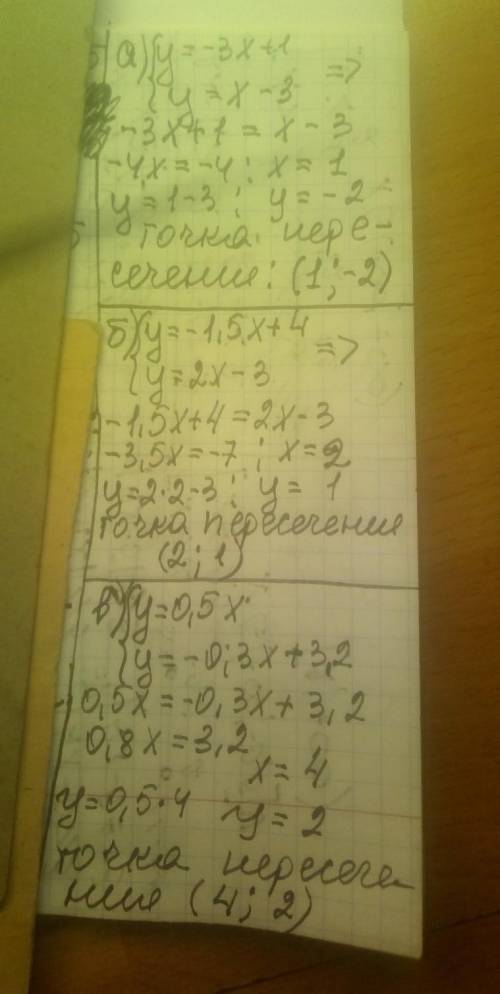 а) { y = -3x+1
{ y = x - 3 =>
-3x+1 = x - 3
-4x = -4 ; x = 1
y = 1-3 ; y = -2
точка пере-
сечения: (1; -2)
б) { y = -1,5x+4
{ y = 2x - 3 =>
-1,5x+4 = 2x - 3
-3,5x = -7 ; x = 2
y = 2·2-3 ; y = 1
точка пересечения
(2; 1)
в) { y = 0,5x
{ y = -0,3x+3,2
0,5x = -0,3x + 3,2
0,8x = 3,2
x = 4
y = 0,5·4 y = 2
точка пересече
ния (4; 2)